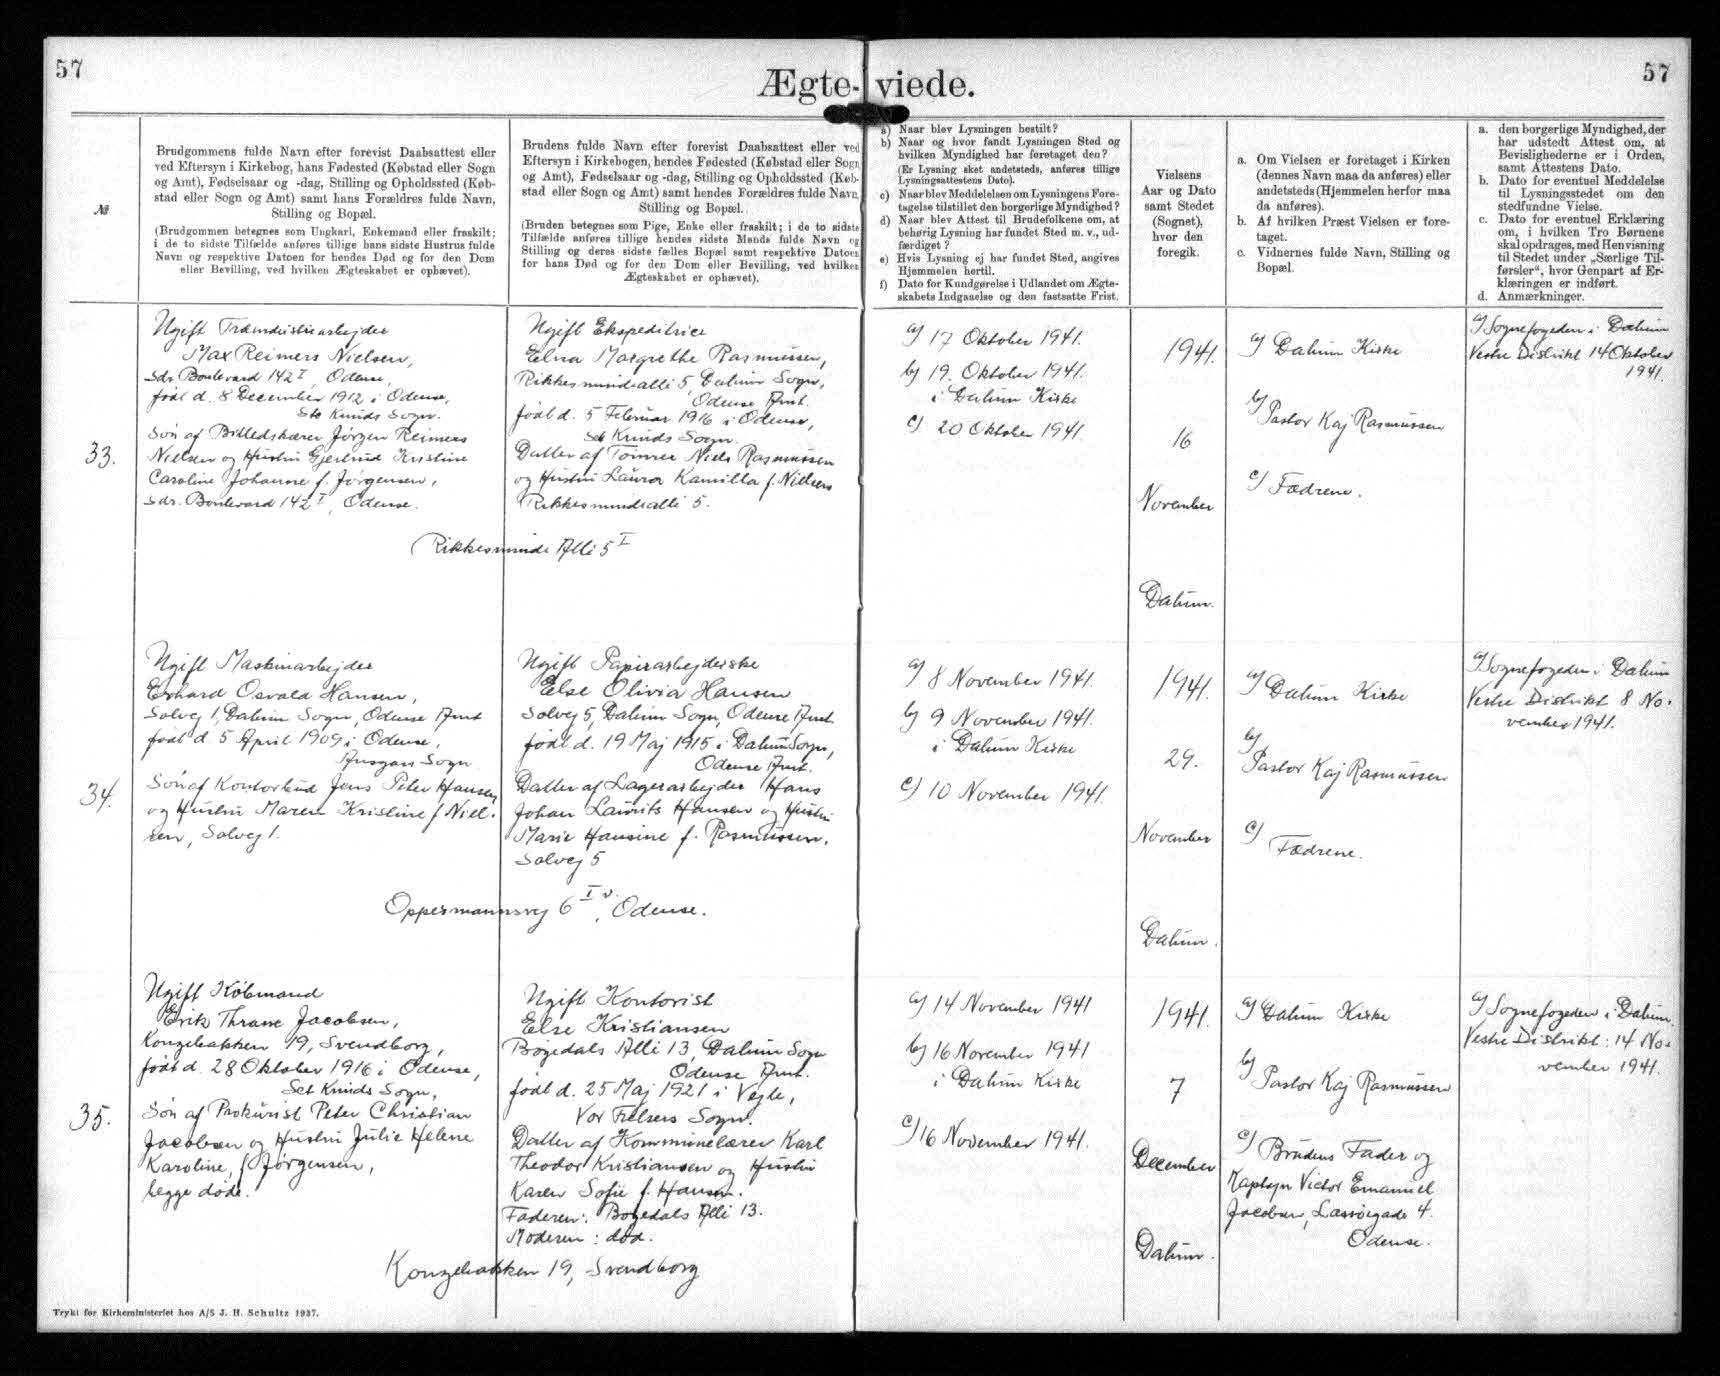 57
57
Ægte-viede.
№
Brudgommens fulde Navn efter forevist Daabsattest eller
ved Eftersyn i Kirkebog, hans Fødested (Købstad eller Sogn
og Amt), Fødselsaar og -dag, Stilling og Opholdssted (Køb-
stad eller Sogn og Amt) samt hans Forældres fulde Navn,
Stilling og Bopæl.
(Brudgommen betegnes som Ungkarl, Enkemand eller fraskilt;
i de to sidste Tilfælde anføres tillige hans sidste Hustrus fulde
Navn og respektive Datoen for hendes Død og for den Dom
eller Bevilling, ved hvilken Ægteskabet er ophævet).
Brudens fulde Navn efter forevist Daabsattest eller ved
Eftersyn i Kirkebogen, hendes Fødested (Købstad eller Sogn
og Amt), Fødselsaar og -dag, Stilling og Opholdssted (Køb-
stad eller Sogn og Amt) samt hendes Forældres fulde Navn,
Stilling og Bopæl.
(Bruden betegnes som Pige, Enke eller fraskilt; i de to sidste
Tilfælde anføres tillige hendes sidste Mands fulde Navn og
Stilling og deres sidste fælles Bopæl samt respektive Datoen
for hans Død og for den Dom eller Bevilling, ved hvilken
Ægteskabet er ophævet).
a) Naar blev Lysningen bestilt?
b) Naar og hvor fandt Lysningen Sted og
hvilken Myndighed har foretaget den?
(Er Lysning sket andetsteds, anføres tillige
Lysningsattestens Dato).
c) Naar blev Meddelelsen om Lysningens Fore-
tagelse tilstillet den borgerlige Myndighed?
d) Naar blev Attest til Brudefolkene om, at
behørig Lysning har fundet Sted m. v., ud-
færdiget?
e) Hvis Lysning ej har fundet Sted, angives
Hjemmelen hertil.
f) Dato for Kundgørelse i Udlandet om Ægte-
skabets Indgaaelse og den fastsatte Frist.
Vielsens
Aar og Dato
samt Stedet
(Sognet),
hvor den
foregik.
a. Om Vielsen er foretaget i Kirken
(dennes Navn maa da anføres) eller
andetsteds (Hjemmelen herfor maa
da anføres).
b. Af hvilken Præst Vielsen er fore-
taget.
c. Vidnernes fulde Navn, Stilling og
Bopæl.
a. den borgerlige Myndighed, der
har udstedt Attest om, at
Bevislighederne er i Orden,
samt Attestens Dato.
b. Dato for eventuel Meddelelse
til Lysningsstedet om den
stedfundne Vielse.
c. Dato for eventuel Erklæring
om, i hvilken Tro Børnene
skal opdrages, med Henvisning
til Stedet under „Særlige Til-
førsler“, hvor Genpart af Er-
klæringen er indført.
d. Anmærkninger.
33.
Ugift Træindustriarbejder
Max Reimers Nielsen,
Sdr. Boulevard 142 I, Odense,
født d. 8 December 1912 i Odense,
Sct Knuds Sogn.
Søn af Billedskærer Jørgen Reimers
Nielsen og Hustru Gjertrud Kristine
Caroline Johanne f. Jørgensen,
Sdr. Boulevard 142 I, Odense.
Ugift Ekspeditrice
Elna Margrethe Rasmussen,
Rikkesmindealle 5, Dalum Sogn,
Odense Amt.
født d. 5 Februar 1916 i Odense,
Sct Knuds Sogn.
Datter af Tømrer Niels Rasmussen
og Hustru Laura Kamilla f. Nielsen
Rikkesmindealle 5.
Rikkesminde Alle 5 I
a) 17 Oktober 1941.
b) 19. Oktober 1941.
i Dalum Kirke
c) 20 Oktober 1941.
1941.
16
November
Dalum.
a) Dalum Kirke
b) Pastor Kaj Rasmussen
c) Fædrene.
a) Sognefogeden i Dalum
Vestre Distrikt 14 Oktober
1941.
34.
Ugift Maskinarbejder
Erhard Osvald Hansen,
Solvej 1, Dalum Sogn, Odense Amt
født d 5 April 1909 i Odense,
Ansgars Sogn
Søn af Kontorbud Jens Peter Hansen
og Hustru Maren Kristine f Niel-
sen, Solvej 1.
Ugift Papirarbejderske
Else Olivia Hansen
Solvej 5, Dalum Sogn, Odense Amt.
født d. 19 Maj 1915 i Dalum Sogn,
Odense Amt.
Datter af Lagerarbejder Hans
Johan Laurits Hansen og Hustru
Marie Hansine f. Rasmussen.
Solvej 5
Oppermannsvej 6 I v., Odense.
a) 8 November 1941.
b) 9 November 1941.
i Dalum Kirke
c) 10 November 1941.
1941.
29.
November
Dalum.
a) Dalum Kirke
b) Pastor Kaj Rasmussen
c) Fædrene.
a) Sognefogeden i Dalum
Vestre Distrikt 8 No-
vember 1941.
35.
Ugift Købmand
Erik Thrane Jacobsen,
Kongebakken 19, Svendborg,
født d. 28 Oktober 1916 i Odense,
Sct Knuds Sogn,
Søn af Prokurist Peter Christian
Jacobsen og Hustru Julie Helene
Karoline, f Jørgensen,
begge døde.
Ugift Kontorist
Else Kristiansen
Bøgedals Alle 13, Dalum Sogn
Odense Amt.
født d. 25 Maj 1921 i Vejle,
Vor Frelsers Sogn.
Datter af Kommunelærer Karl
Theodor Kristiansen og Hustru
Karen Sofie f. Hansen.
Faderen: Bøgedals Alle 13.
Moderen: død.
Kongebakken 19, Svendborg
a) 14 November 1941
b) 16 November 1941
i Dalum Kirke
c) 16 November 1941.
1941.
7
December
Dalum.
a) Dalum Kirke
b) Pastor Kaj Rasmussen
c) Brudens Fader og
Kaptajn Victor Emanuel
Jacobsen, Lassøegade 4.
Odense.
a) Sognefogeden i Dalum
Vestre Distrikt: 14 No-
vember 1941.
Trykt for Kirkeministeriet hos A/S J. H. Schultz 1937.